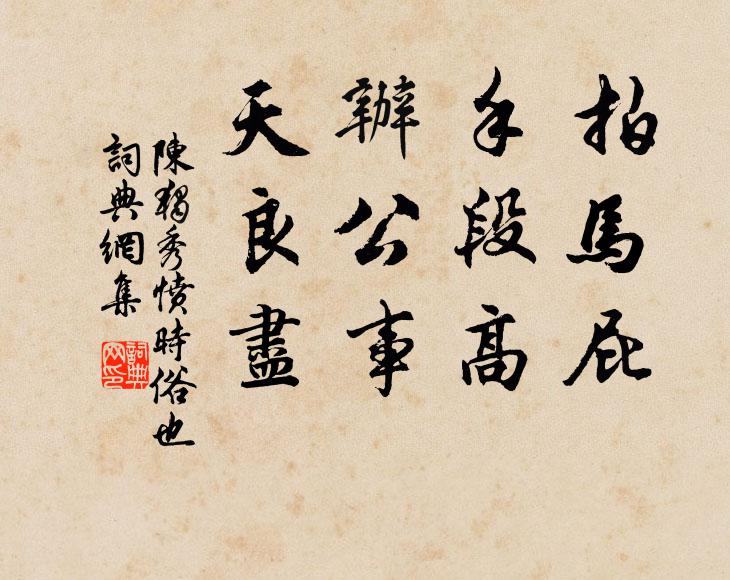 拍馬屁
手段高
辦公事
天良盡
陳獨秀憤時俗也
詞典網集
詞典網印